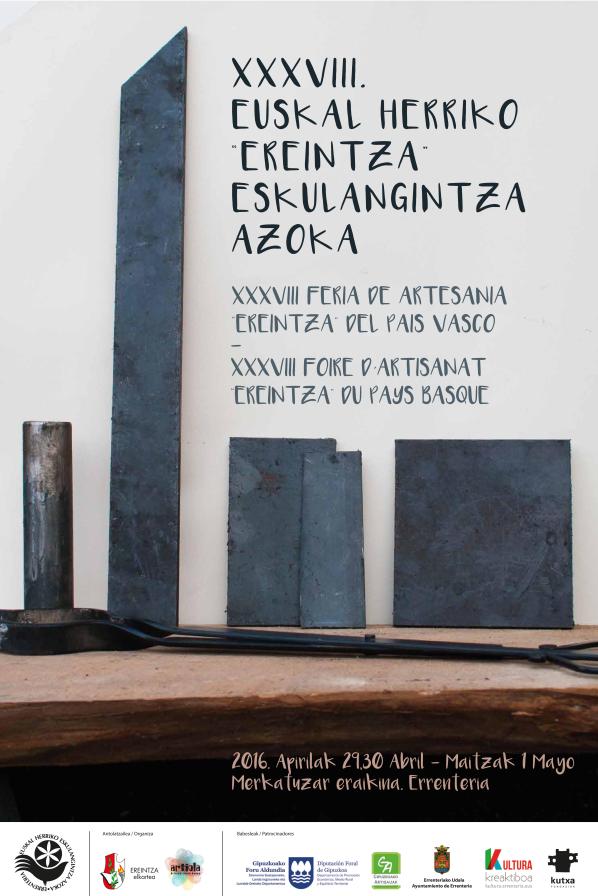 XXXVIII.
EUSKAL HERRIKO
"EREINTZA"
ESKULANGINTZA
AZOKA
XXXVIII FERIA DE ARTESANIA
"EREINTZA" DEL PAIS VASCO
–
XXXVIII FOIRE D'ARTISANAT
"EREINTZA" DU PAYS BASQUE
2016. Apirilak 29,30 Abril - Maitzak 1 Mayo
Merkatuzar eraikina. Errenteria
EUSKAL HERRIKO ESKULANGINTZA AZOKA • ERRENTERIA
Antolatzailea / Organiza
EREINTZA
elkartea
artiola
Babesleak / Patrocinadores
Gipuzkoako
Foru Aldundia
Diputación Foral
de Gipuzkoa
GIPUZKOAKO
ARTISAUAK
Errenteriako Udala
Ayuntamiento de Errenteria
KULTURA
kreaktiboa
kutxa